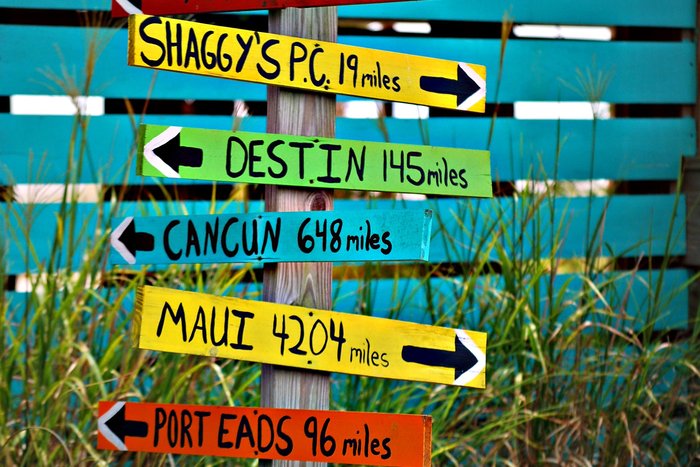 SHAGGY'S P.C. 19 miles
DESTIN 145 miles
CANCUN 648 miles
MAUI 4204 miles
PORT EADS 96 miles